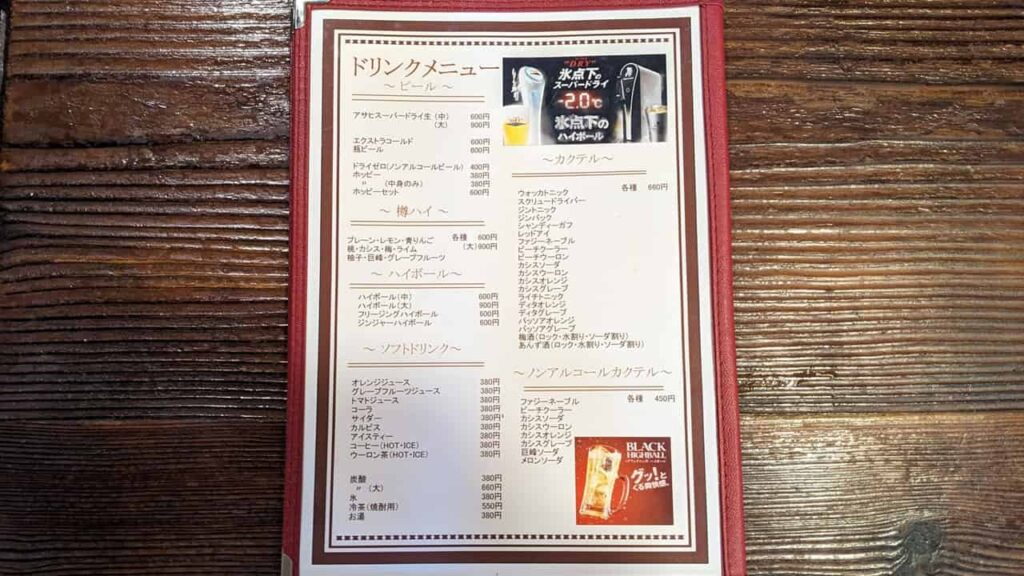 ドリンクメニュー
～ ビール ～
アサヒスーパードライ生（中） 600円
（大） 900円
エクストラコールド 600円
瓶ビール 600円
ドライゼロ(ノンアルコールビール) 400円
ホッピー 380円
〃 （中身のみ） 380円
ホッピーセット 600円
～ 樽ハイ ～
プレーン・レモン・青りんご 各種 600円
桃・カシス・梅・ライム （大）900円
柚子・巨峰・グレープフルーツ
～ ハイボール～
ハイボール（中） 600円
ハイボール（大） 900円
フリージングハイボール 600円
ジンジャーハイボール 600円
～ ソフトドリンク～
オレンジジュース 380円
グレープフルーツジュース 380円
トマトジュース 380円
コーラ 380円
サイダー 380円
カルピス 380円
アイスティー 380円
コーヒー（HOT・ICE） 380円
ウーロン茶（HOT・ICE） 380円
炭酸 380円
〃 （大） 660円
氷 380円
冷茶（焼酎用） 550円
お湯 380円
"DRY"
氷点下の
スーパードライ
-2.0℃
氷点下の
ハイボール
～カクテル～
各種 660円
ウォッカトニック
スクリュードライバー
ジントニック
ジンバック
シャンディーガフ
レッドアイ
ファジーネーブル
ピーチクーラー
ピーチウーロン
カシスソーダ
カシスウーロン
カシスオレンジ
カシスグレープ
ライチトニック
ディタオレンジ
ディタグレープ
パッソアオレンジ
パッソアグレープ
梅酒（ロック・水割り・ソーダ割り）
あんず酒（ロック・水割り・ソーダ割り）
～ノンアルコールカクテル～
各種 450円
ファジーネーブル
ピーチクーラー
カシスソーダ
カシスウーロン
カシスオレンジ
カシスグレープ
巨峰ソーダ
メロンソーダ
BLACK
HIGHBALL
グッ!と
くる爽快感。